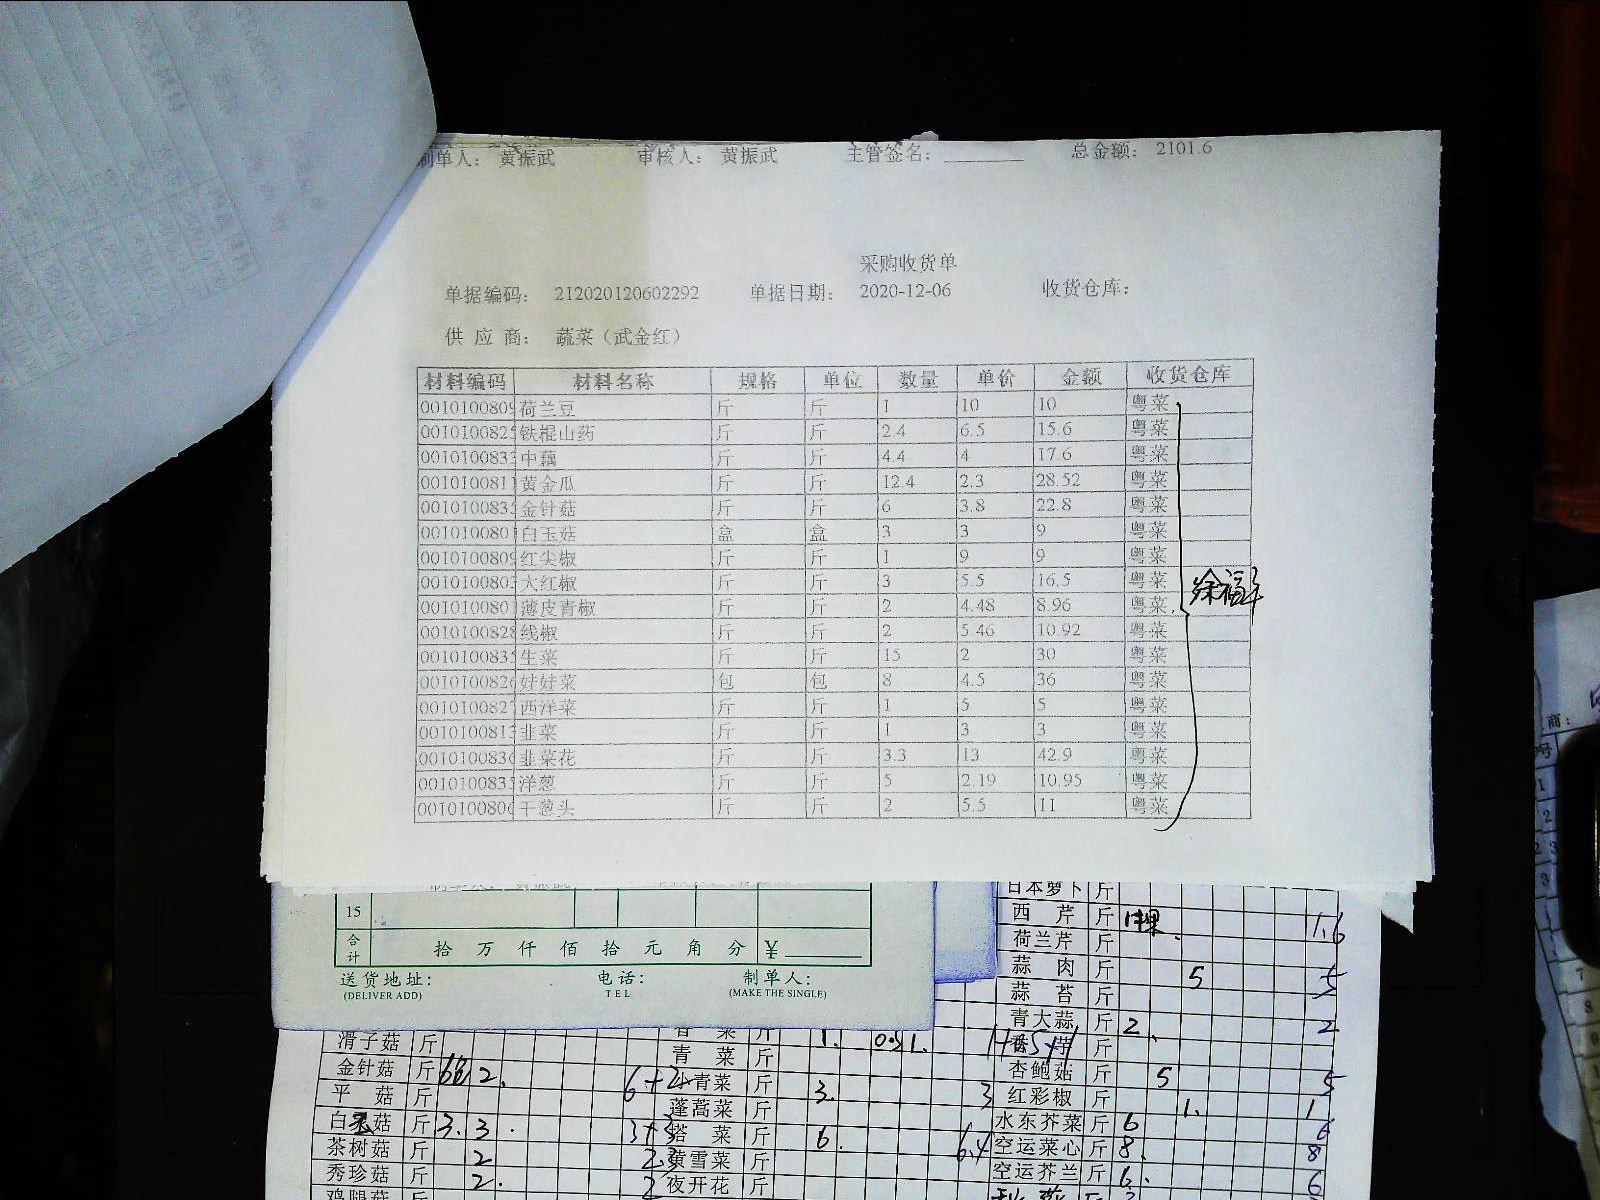 制单人: 黄振武 审核人: 黄振武 主管签名: 总金额: 2101.6
采购收货单
单据编码: 212020120602292 单据日期: 2020-12-06 收货仓库:
供 应 商: 蔬菜（武金红）
材料编码 材料名称 规格 单位 数量 单价 金额 收货仓库
0010100809 荷兰豆 斤 斤 1 10 10 粤菜
001010082 铁棍山药 斤 斤 2.4 6.5 15.6 粤菜
001010083 中藕 斤 斤 4.4 4 17.6 粤菜
001010081 黄金瓜 斤 斤 12.4 2.3 28.52 粤菜
001010083 金针菇 斤 斤 6 3.8 22.8 粤菜
001010080 白玉菇 盒 盒 3 3 9 粤菜
0010100809 红尖椒 斤 斤 1 9 9 粤菜
001010080 大红椒 斤 斤 3 5.5 16.5 粤菜
001010080 薄皮青椒 斤 斤 2 4.48 8.96 粤菜
001010082 线椒 斤 斤 2 5.46 10.92 粤菜
001010083 生菜 斤 斤 15 2 30 粤菜
001010082 娃娃菜 包 包 8 4.5 36 粤菜
001010082 西洋菜 斤 斤 1 5 5 粤菜
001010081 韭菜 斤 斤 1 3 3 粤菜
001010083 韭菜花 斤 斤 3.3 13 42.9 粤菜
001010083 洋葱 斤 斤 5 2.19 10.95 粤菜
001010080 干葱头 斤 斤 2 5.5 11 粤菜
15
合计 拾 万 仟 佰 拾 元 角 分 ¥
送货地址: 电话: 制单人:
(DELIVER ADD) TEL (MAKE THE SINGLE)
日本萝卜 斤
西 芹 斤 1.6
荷兰芹 斤
蒜 肉 斤 5 5
蒜 苔 斤
青大蒜 斤 2 2
滑子菇 斤 青 菜 斤 斤
金针菇 斤 2. 青菜 斤 3. 3 杏鲍菇 斤 5 5
平 菇 斤 蓬蒿菜 斤 红彩椒 斤 1. 1
白玉菇 斤 3. 3. 3+3 塔 菜 斤 6. 水东芥菜 斤 6 6
茶树菇 斤 2 2 黄雪菜 斤 空运菜心 斤 8. 8
秀珍菇 斤 2. 2 夜开花 斤 空运芥兰 斤 6. 6
鸡腿菇 斤